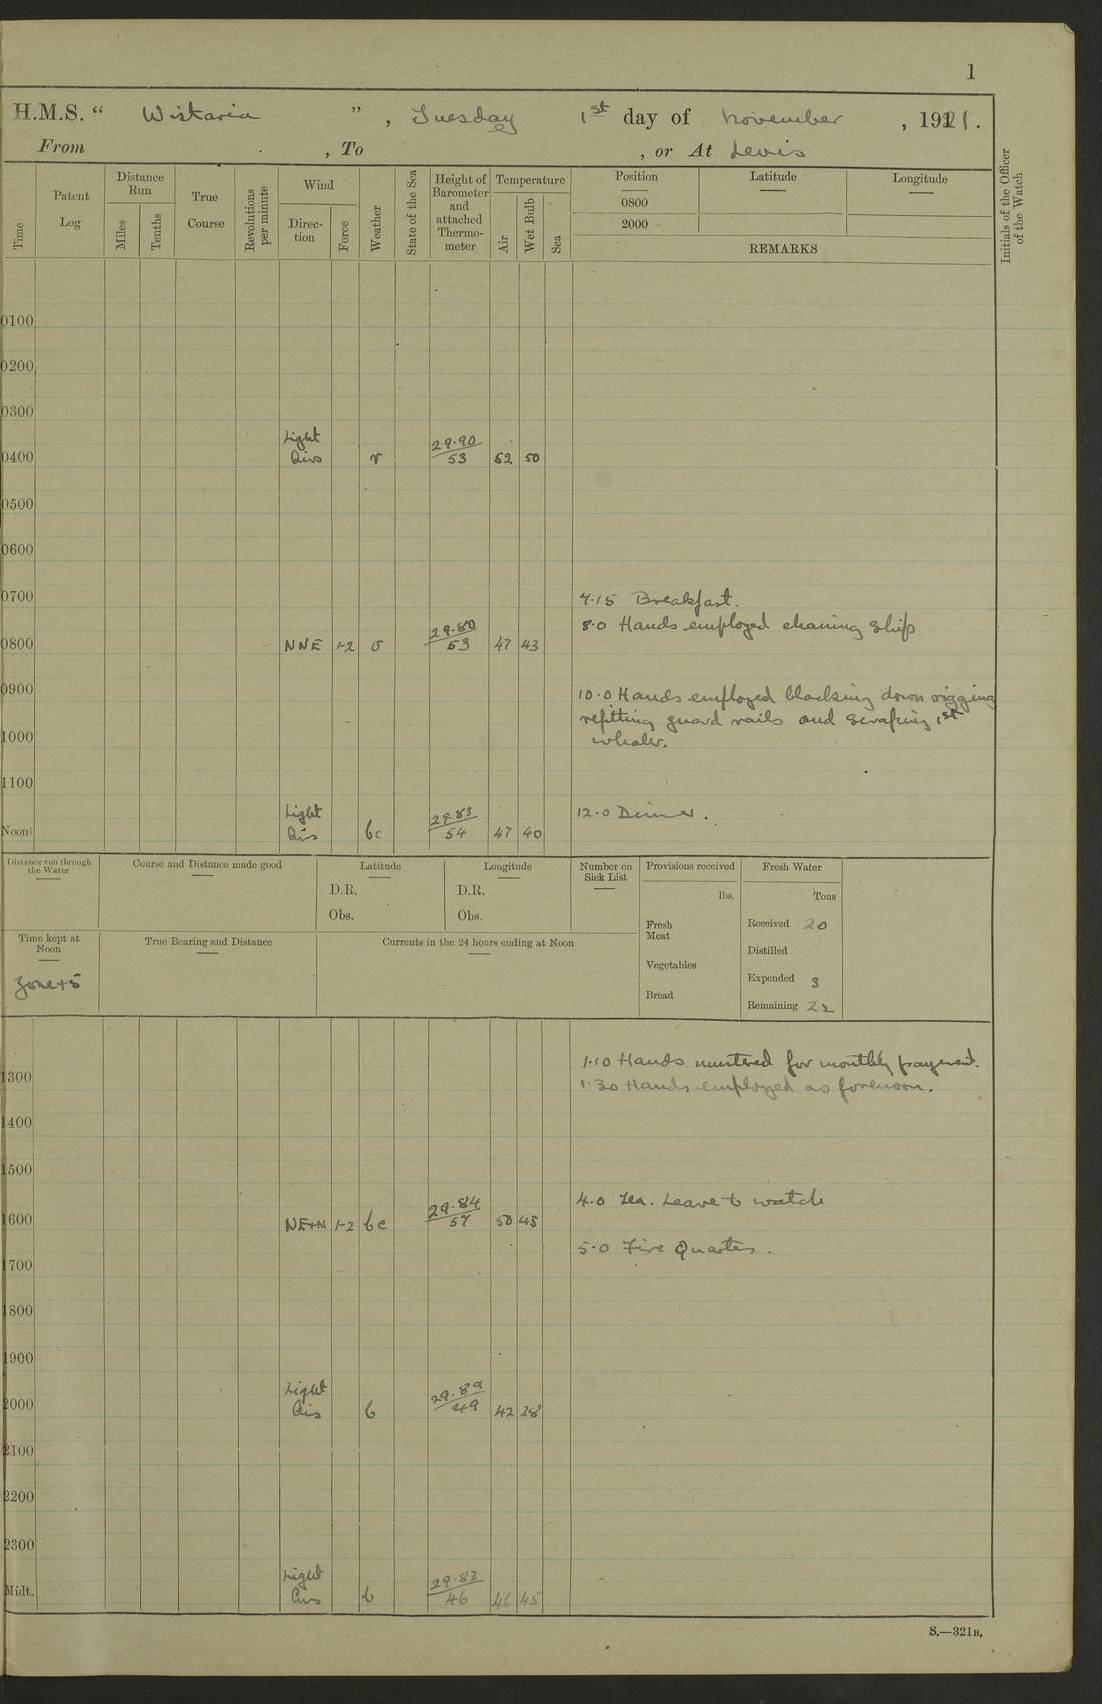 1
H.M.S. “ Wistaria ” , Tuesday 1st day of November , 1921.
From , To , or At Levis
Time
Patent Log
Distance Run
Miles
Tenths
True Course
Revolutions per minute
Wind
Direction
Force
Weather
State of the Sea
Height of Barometer and attached Thermometer
Temperature
Air
Wet Bulb
Sea
Position
0800
2000
Latitude
Longitude
REMARKS
Initials of the Officer of the Watch
0100
0200
0300
Light 29.90
0400 Airs r 53 52 50
0500
0600
0700
7.15 Breakfast.
8.0 Hands employed cleaning ship
29.80
0800 NNE 1-2 o 53 47 43
0900
10.0 Hands employed blacking down rigging
refitting guard rails and scraping 1st
1000
whaler.
1100
Light 29.83 12.0 Dinner.
Noon Airs bc 54 47 40
Distance run through the Water
Course and Distance made good
Latitude
D.R.
Obs.
Longitude
D.R.
Obs.
Number on Sick List
Provisions received
lbs.
Fresh Meat
Vegetables
Bread
Fresh Water
Tons
Received 20
Distilled
Expended 3
Remaining 22
Time kept at Noon
Zone+5
True Bearing and Distance
Currents in the 24 hours ending at Noon
1.10 Hands mustered for monthly payment.
1300
1.30 Hands employed as forenoon.
1400
1500
4.0 Tea. Leave to watch
29.84
1600 NE+N 1-2 bc 57 50 45
5.0 Fire Quarters.
1700
1800
1900
Light 29.89
2000 Airs b 49 42 38
2100
2200
2300
Light 29.83
Midt. Airs b 46 46 45
S.—321B.